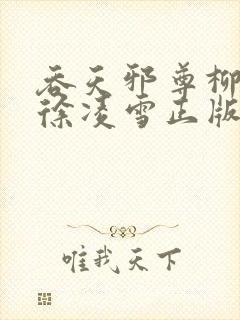 吞天邪尊柳
徐凌雪正版
唯我天下